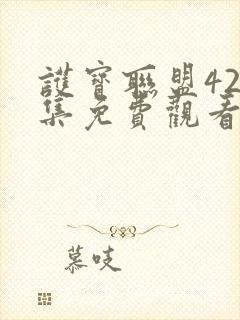 護寶聯盟42
集免費觀看
慕吱